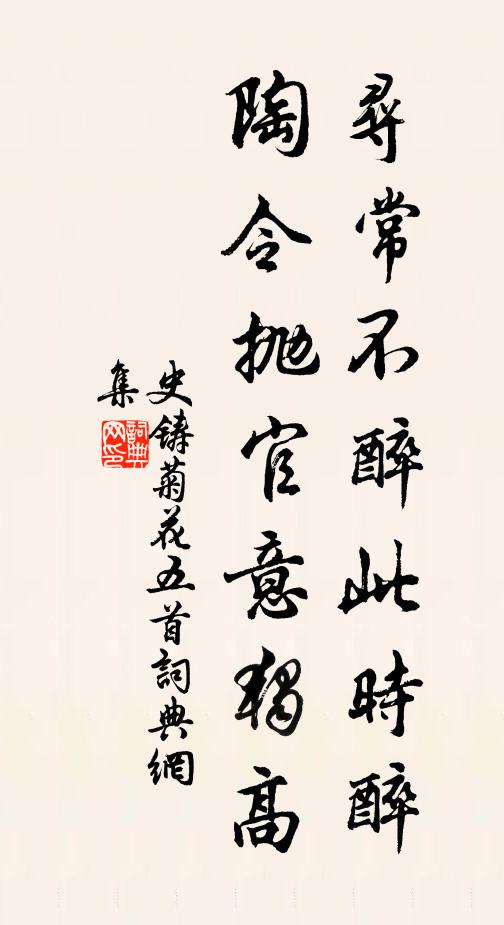 尋常不醉此時醉
陶令拋官意獨高
史鑄菊花五首詞典網
集
詞典
网印